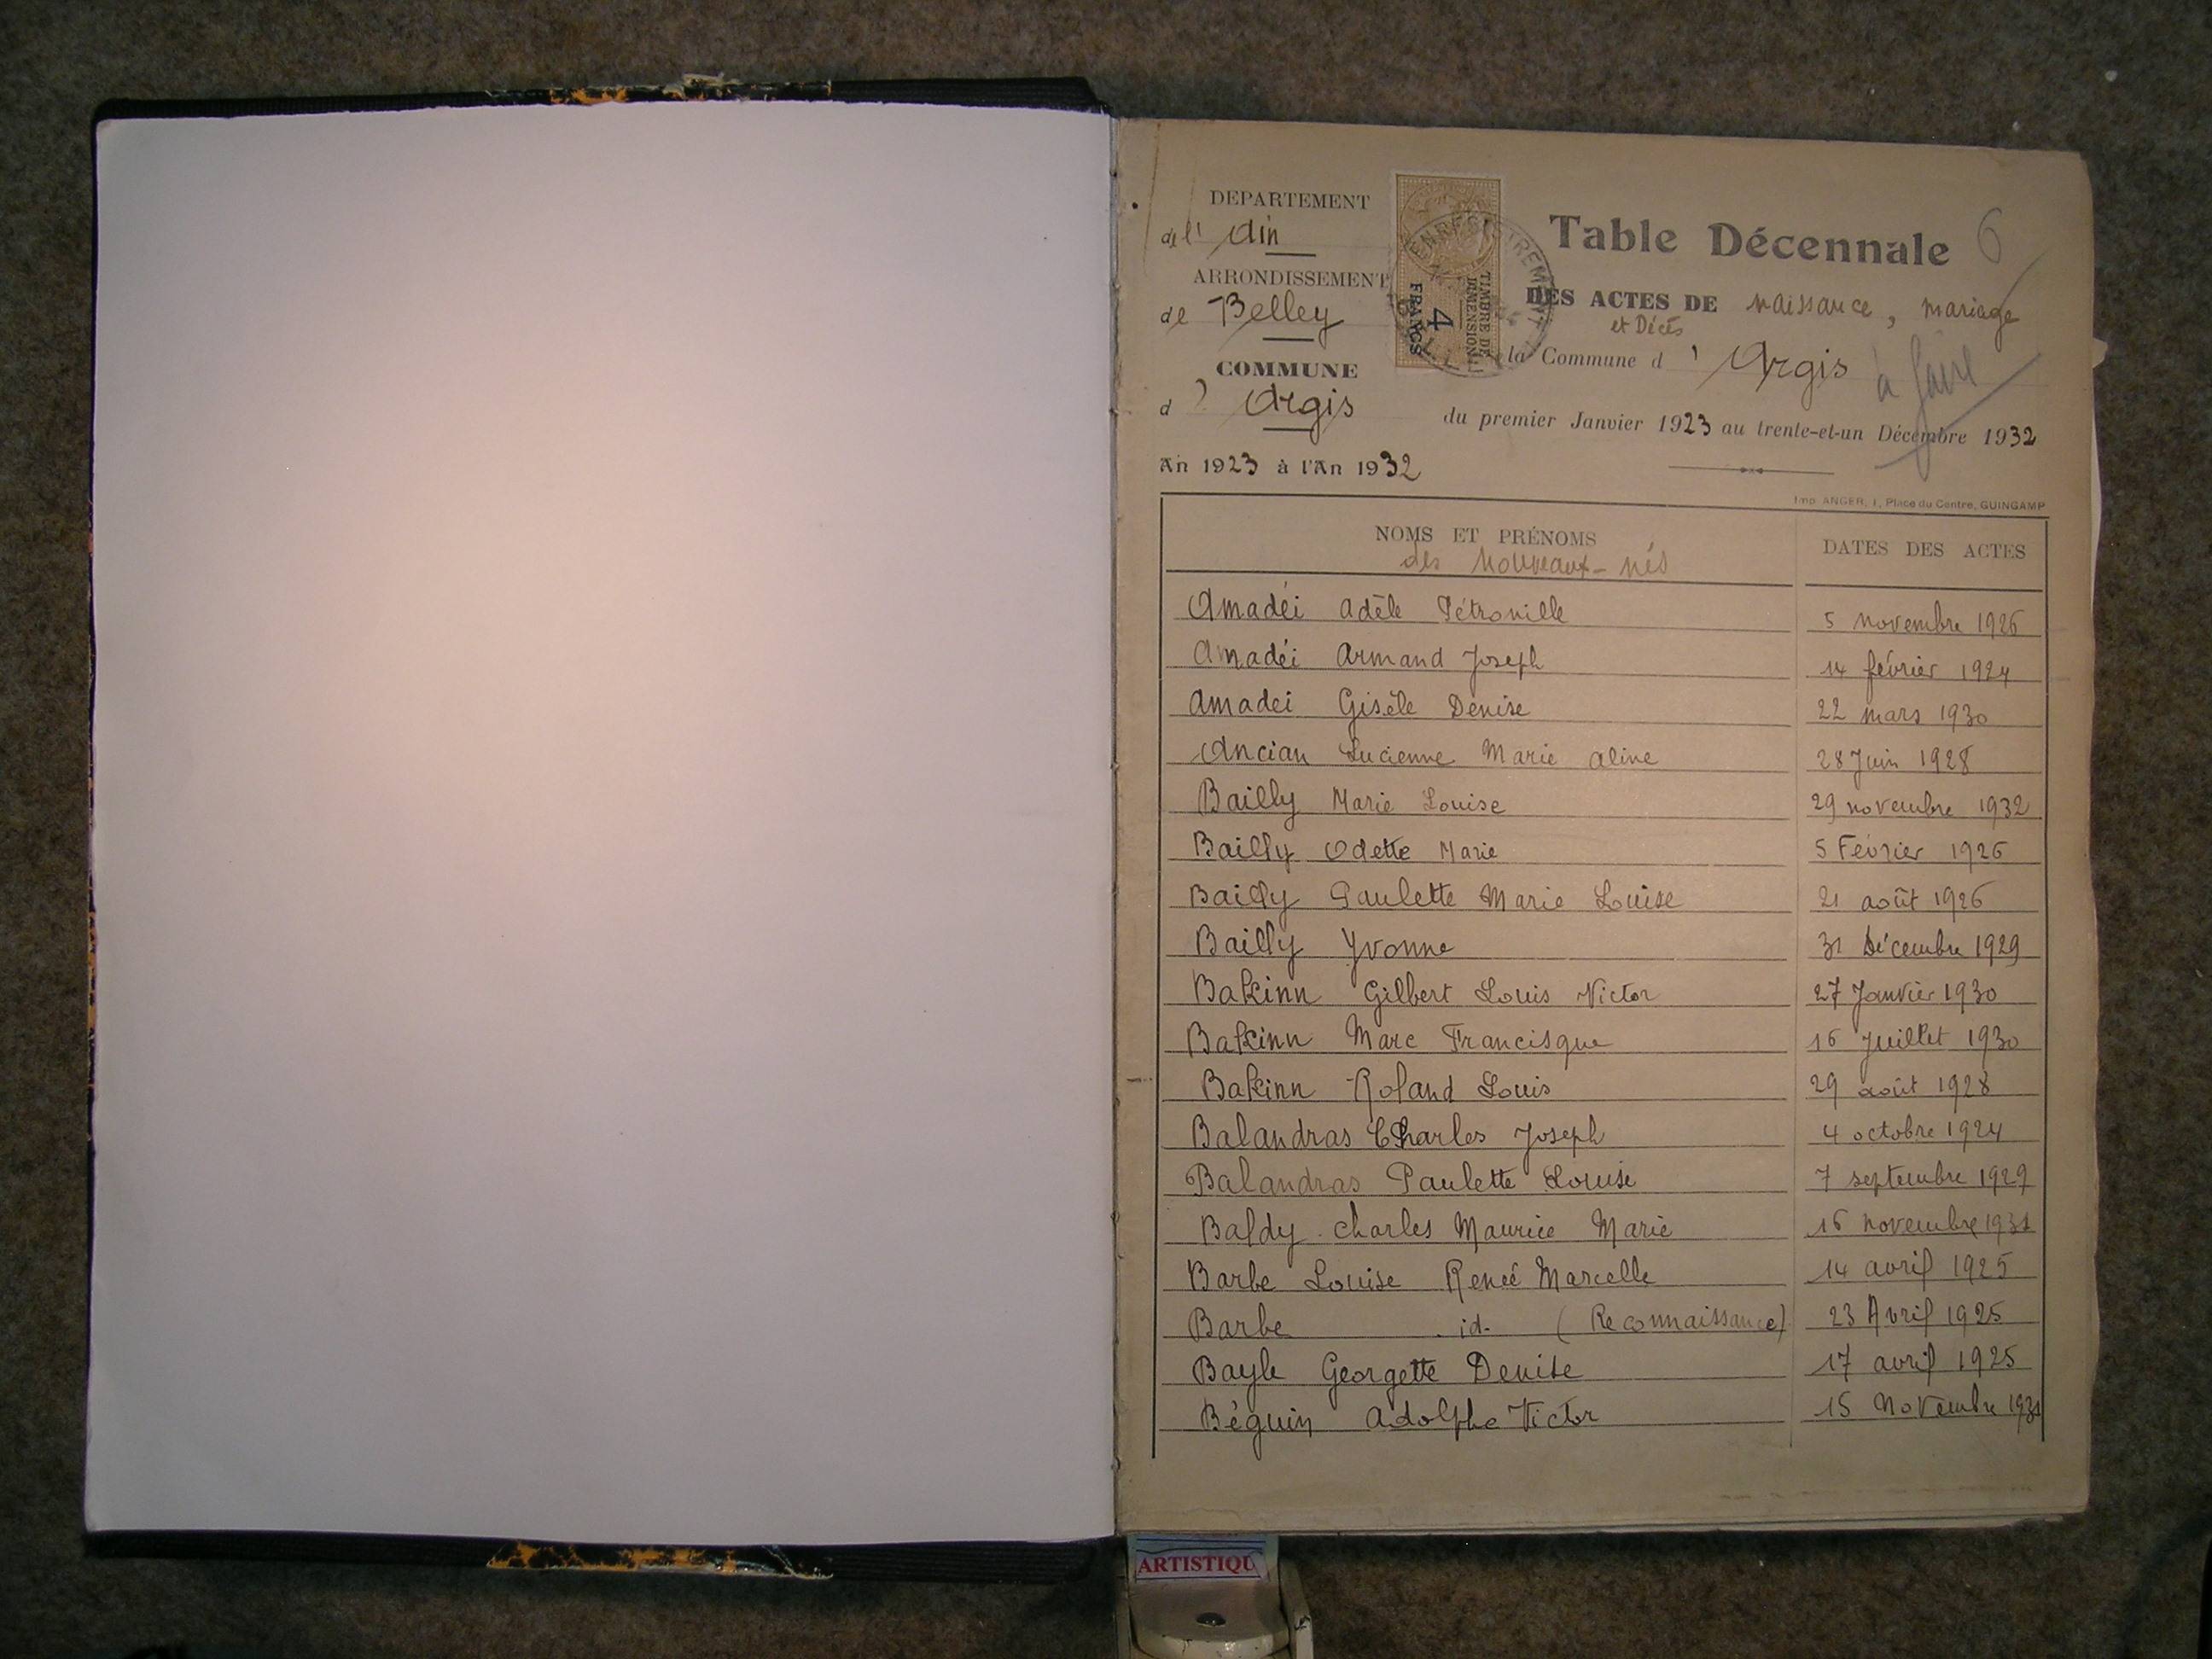 DEPARTEMENT
de l' Ain
ARRONDISSEMENT
de Belley
COMMUNE
d' Argis
An 1923 à l'An 1932
ENREGISTREMENT
TIMBRE DE
DIMENSION
4
FRANCS
Table Décennale 6
DES ACTES DE naissance, mariage
et Décès
la Commune d' Argis
à faire
du premier Janvier 1923 au trente-et-un Décembre 1932
Imp. ANGER, 1, Place du Centre, GUINGAMP
NOMS ET PRÉNOMS DATES DES ACTES
des Nouveaux-nés
Amadéi Adèle Pétronille 5 novembre 1926
Amadéi Armand Joseph 14 février 1924
Amadei Gisèle Denise 22 mars 1930
Ancian Lucienne Marie Aline 28 Juin 1928
Bailly Marie Louise 29 novembre 1932
Bailly Odette Marie 5 Février 1926
Bailly Paulette Marie Louise 21 août 1926
Bailly Yvonne 31 Décembre 1929
Bakinn Gilbert Louis Victor 27 Janvier 1930
Bakinn Marc Francisque 16 Juillet 1930
Bakinn Roland Louis 29 août 1928
Balandras Charles Joseph 4 octobre 1924
Balandras Paulette Louise 7 septembre 1929
Baldy Charles Maurice Marie 16 novembre 1931
Barbe Louise Renée Marcelle 14 avril 1925
Barbe id. (Reconnaissance) 23 Avril 1925
Bayle Georgette Denise 17 avril 1925
Béguin Adolphe Victor 15 Novembre 1931
ARTISTIQU